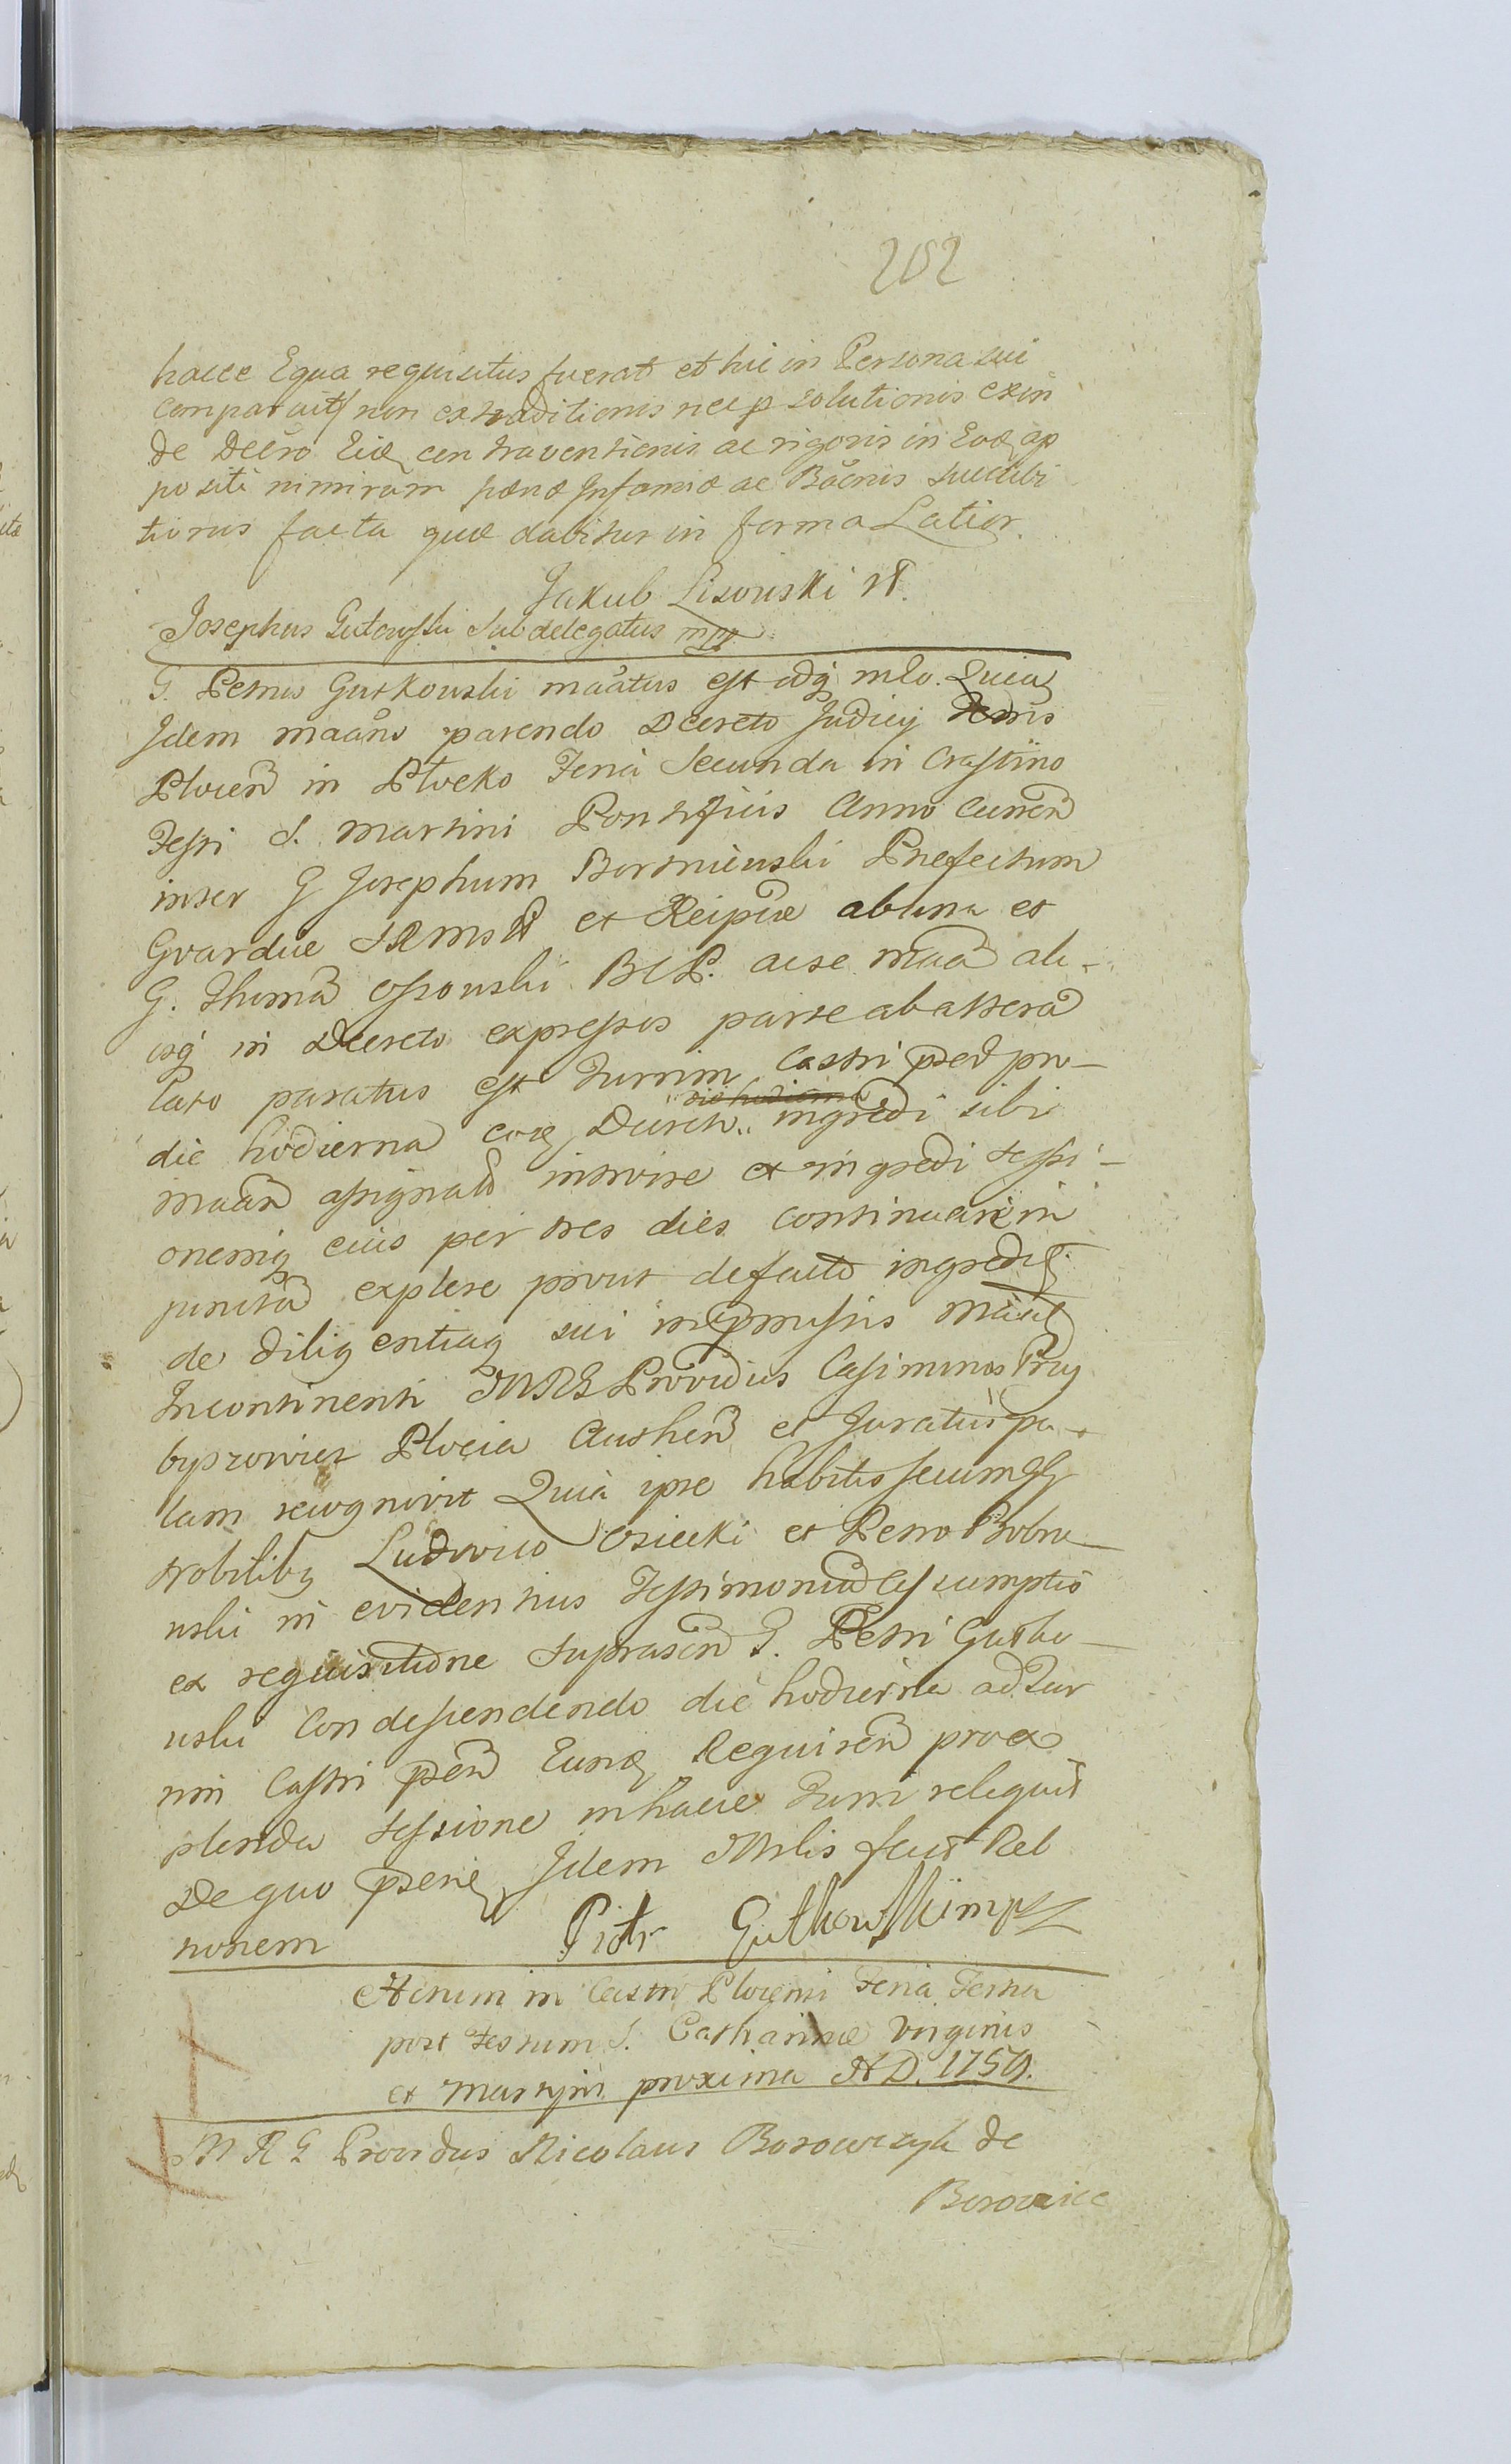 202
hacce Equa requisitus fuerat et hic in Persona sui
comparuit non extraditionis nec solutionis exin
de Decro Eidē contraventionis ac rigoris in Eodē ap
positi nimirum pænæ Infamiæ ac Bãenis succubi
tionis facta quæ dabitur in forma Latior.
Jakub Lisowski
Josephus Gutowski Subdelegatus mpp
G. Petrus Gutkowski maãtus est adq mlo. Quia
Idem maãns parendo Decreto Judicij
Plocen in Plocko Feria Secunda in Crastino
Festi S. Martini Pontificis Anno curren
inter G Josephum Bortniewski Præfectum
Gvardiæ SRMst et Reipcæ ab una et
G. Thomã Ossowski BCP. ac se maã ali-
isq in Decreto expressis parte ab altera
lato paratus est Turrim Castri pred pro-
die hodierna coiq Duren.. ingredi sibi
maãn assignatã introire et ingredi sessi-
onemq eius per tres dies continuare in
junctã explere prout de facto ingredit
de diligentiaq sui in præmissis maãt
Incontinenti MRG Providus Casimirus Przy
byszowicz Plocia Authen et Juratus pa-
lam recognovit Quia ipse habitis secum
Nobilibq Ludovico Osiecki et Petro Bobro-
wski in evidentius Testimoniũ assumptis
ex requisitione suprascrip G. Petri Gutko-
wski Condescendendo die hodierna ad Tur
rim Castri pñ Eundē Requiren pro ex
plenda sessione in hacce Turri reliquit
De quo psenē Idem Mrlis fecit Rel
nonem
Piotr Gutkowski mpp
Actum in Castri Plocensi Feria Tertia
post Festum S. Catharinæ Virginis
et Martyris proxima A D. 1759.
M R G Providus Nicolaus Borowczyk de
Borowice